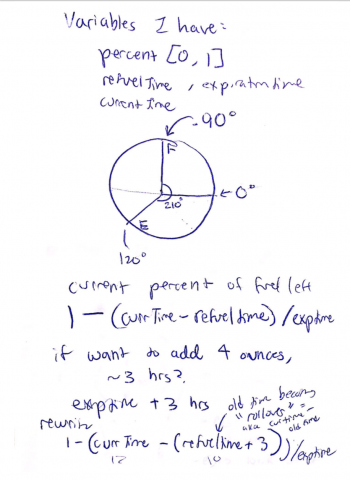 Variables I have:
percent [0, 1]
refuel time, expiration time
current time
-90°
F
0°
210°
E
120°
current percent of fuel left
1 - (curr Time - refuel time) / exptime
if want to add 4 ounces,
~3 hrs?
exptime + 3 hrs
old time becomes
"rollover" =
aka currtime -
old time
rewrite
1 - (curr Time - (refuel time + 3)) / exptime
12 10